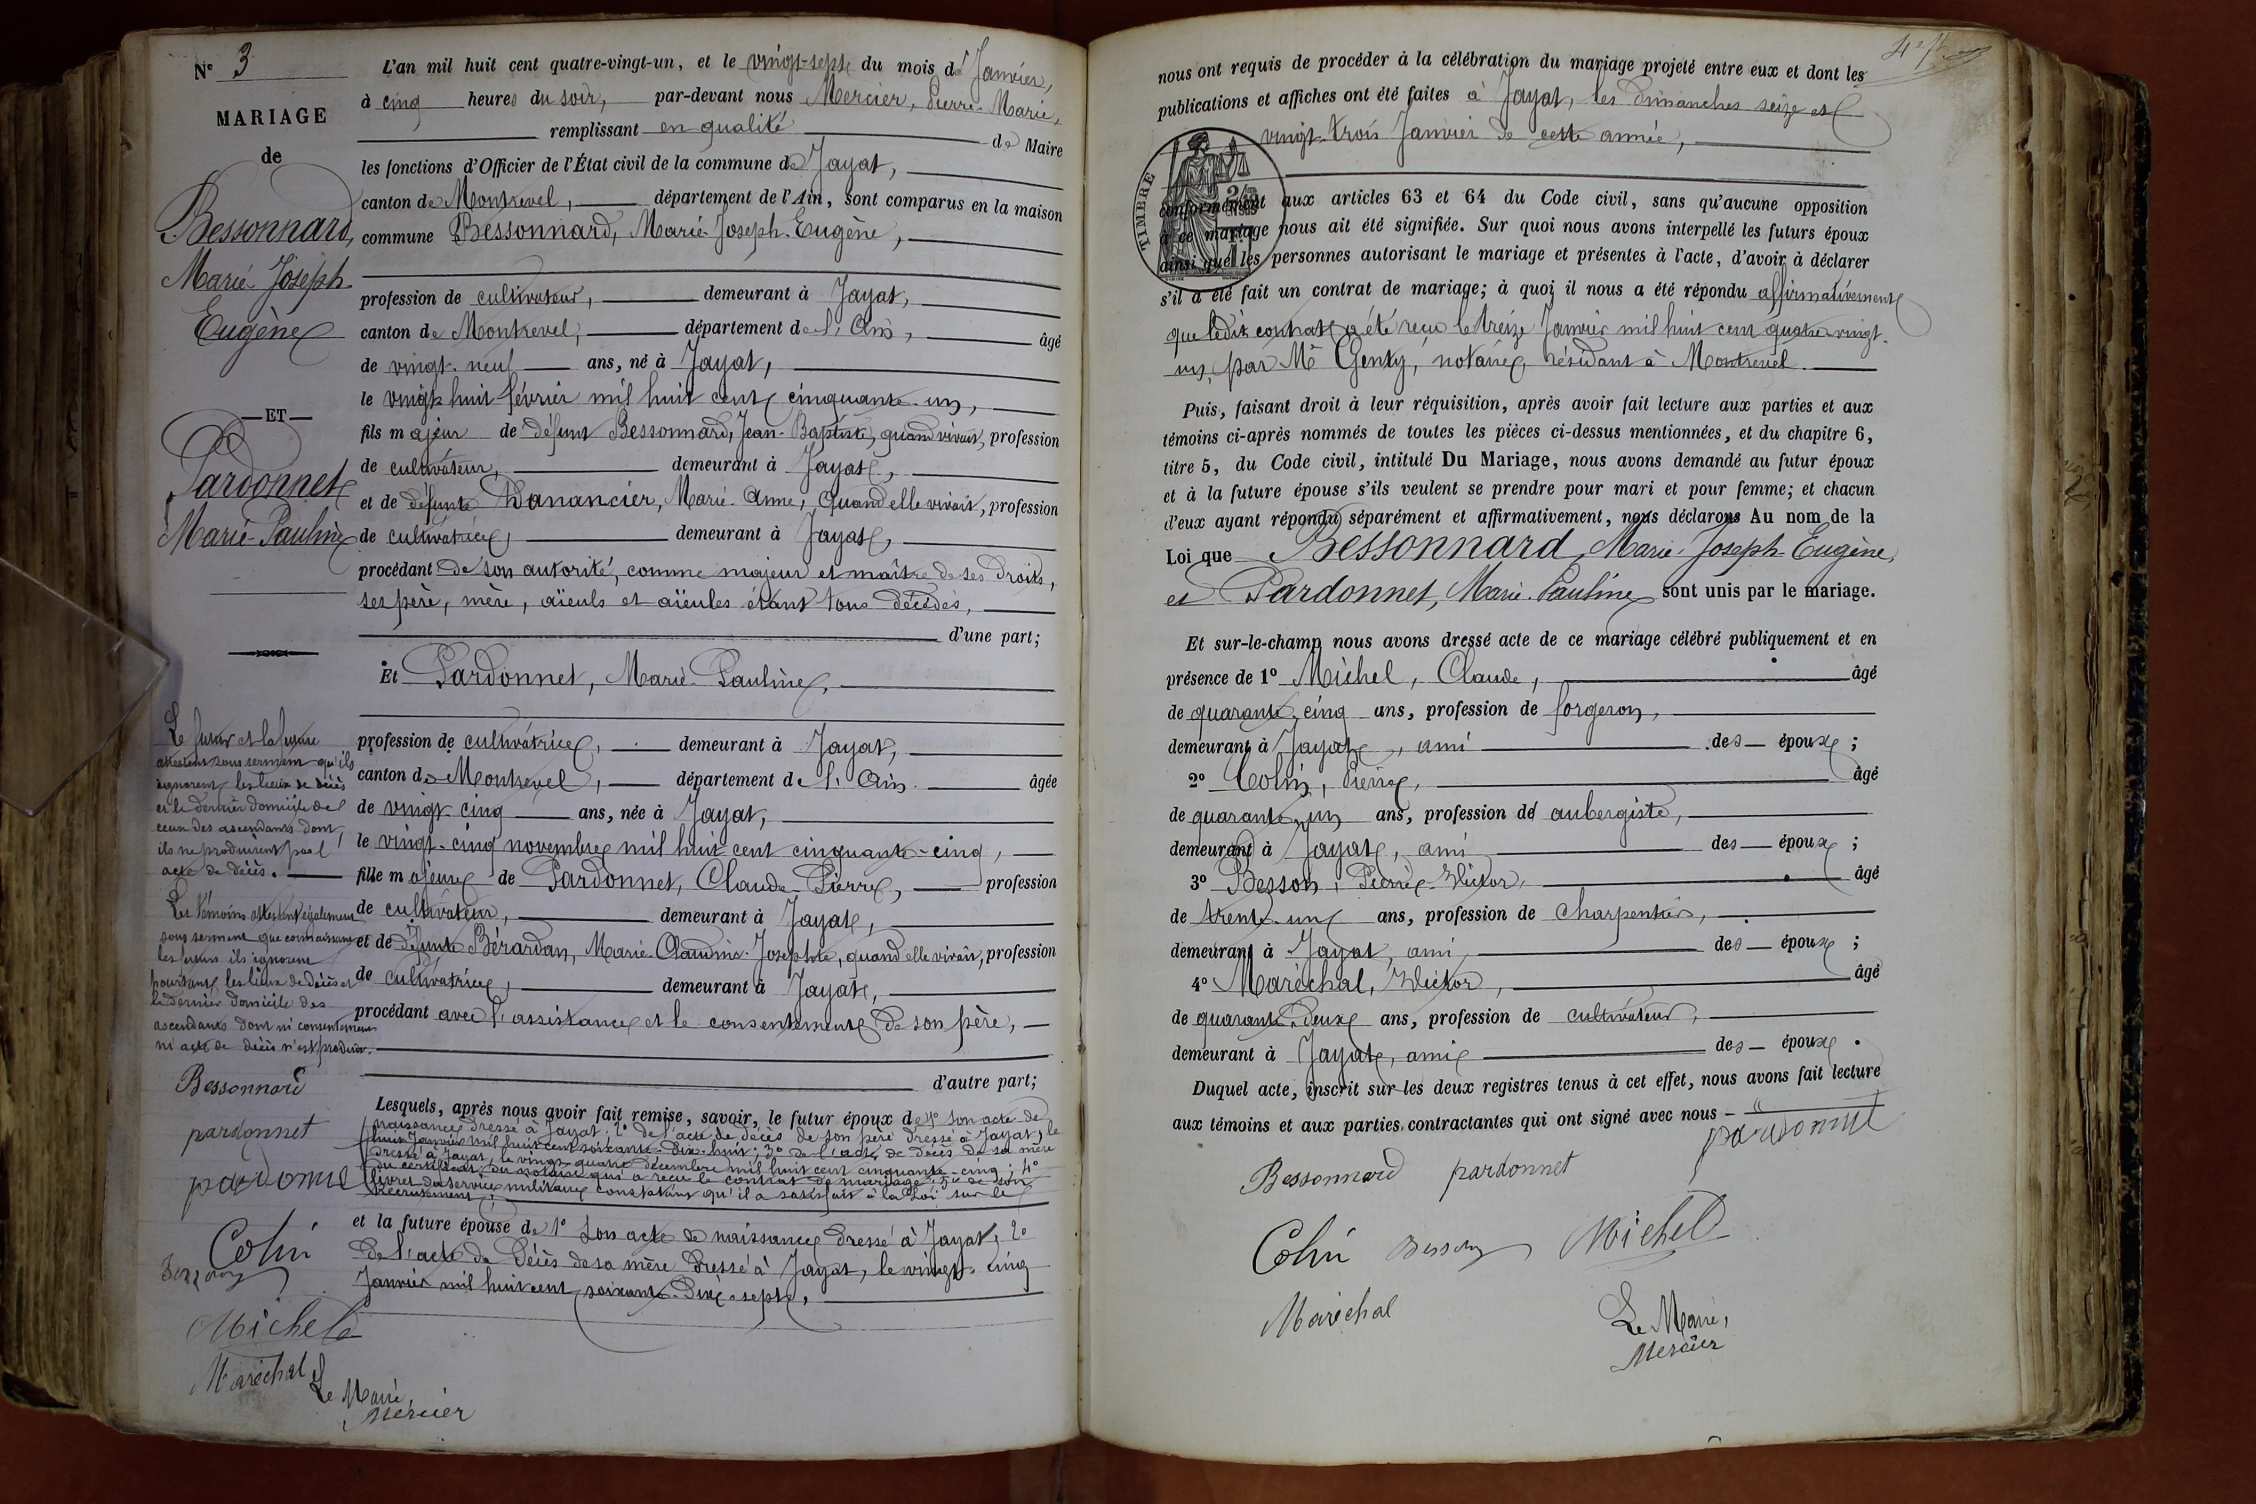 N° 3
MARIAGE
de
Bessonnard,
Marie-Joseph-
Eugène
— ET —
Pardonnet
Marie-Pauline
Le futur et la future
attestent sous serment qu'ils
ignorent les lieux de décès
et le dernier domicile de
ceux des ascendants dont
ils ne produisent pas l'
acte de décès.
Les témoins attestent également
sous serment que connaissant
les futurs ils ignorent
pourtant les lieux de décès et
le dernier domicile des
ascendants dont ni consentement
ni acte de décès n'est produit.
Bessonnard
pardonnet
pardonnet
Colin
Besson
Michel
Maréchal
Le Maire,
Mercier
L'an mil huit cent quatre-vingt-un, et le vingt-sept du mois de Janvier,
à cinq heures du soir, par-devant nous Mercier, Pierre-Marie,
remplissant en qualité de Maire
les fonctions d'Officier de l'État civil de la commune de Jayat,
canton de Montrevel, département de l'Ain, sont comparus en la maison
commune Bessonnard, Marie-Joseph-Eugène,
profession de cultivateur, demeurant à Jayat,
canton de Montrevel, département de l'Ain, âgé
de vingt-neuf ans, né à Jayat,
le vingt-huit février mil huit cent cinquante-un,
fils majeur de défunt Bessonnard, Jean-Baptiste, quand vivait, profession
de cultivateur, demeurant à Jayat,
et de défunte Danancier, Marie-Anne, quand elle vivait, profession
de cultivatrice, demeurant à Jayat,
procédant de son autorité, comme majeur et maître de ses droits,
ses père, mère, aïeuls et aïeules étant tous décédés,
d'une part;
Et Pardonnet, Marie-Pauline,
profession de cultivatrice, demeurant à Jayat,
canton de Montrevel, département de l'Ain. âgée
de vingt-cinq ans, née à Jayat,
le vingt-cinq novembre mil huit cent cinquante-cinq,
fille majeure de Pardonnet, Claude-Pierre, profession
de cultivateur, demeurant à Jayat,
et de défunte Bérardan, Marie-Claudine-Josephte, quand elle vivait, profession
de cultivatrice, demeurant à Jayat,
procédant avec l'assistance et le consentement de son père,
d'autre part;
Lesquels, après nous avoir fait remise, savoir, le futur époux de 1° son acte de
naissance dressé à Jayat; 2° de l'acte de décès de son père dressé à Jayat, le
huit Janvier mil huit cent soixante-dix-huit; 3° de l'acte de décès de sa mère
dressé à Jayat, le vingt-quatre décembre mil huit cent cinquante-cinq; 4°
du certificat du notaire qui a reçu le contrat de mariage; 5° de son
livret du service militaire constatant qu'il a satisfait à la Loi sur le
recrutement;
et la future épouse de 1° Son acte de naissance dressé à Jayat; 2°
de l'acte de décès de sa mère dressé à Jayat, le vingt-cinq
Janvier mil huit cent soixante-dix-sept,
nous ont requis de procéder à la célébration du mariage projeté entre eux et dont les
publications et affiches ont été faites à Jayat, les dimanches seize et
vingt-trois Janvier de cette année,
TIMBRE
conformément aux articles 63 et 64 du Code civil, sans qu'aucune opposition
à ce mariage nous ait été signifiée. Sur quoi nous avons interpellé les futurs époux
ainsi que les personnes autorisant le mariage et présentes à l'acte, d'avoir à déclarer
s'il a été fait un contrat de mariage; à quoi il nous a été répondu affirmativement
que ledit contrat a été reçu le treize Janvier mil huit cent quatre-vingt-
un, par Me Genty, notaire, résidant à Montrevel.
Puis, faisant droit à leur réquisition, après avoir fait lecture aux parties et aux
témoins ci-après nommés de toutes les pièces ci-dessus mentionnées, et du chapitre 6,
titre 5, du Code civil, intitulé Du Mariage, nous avons demandé au futur époux
et à la future épouse s'ils veulent se prendre pour mari et pour femme; et chacun
d'eux ayant répondu séparément et affirmativement, nous déclarons Au nom de la
Loi que Bessonnard, Marie-Joseph-Eugène,
et Pardonnet, Marie-Pauline sont unis par le mariage.
Et sur-le-champ nous avons dressé acte de ce mariage célébré publiquement et en
présence de 1° Michel, Claude, âgé
de quarante-cinq ans, profession de forgeron,
demeurant à Jayat, ami des époux;
2° Colin, Pierre, âgé
de quarante-un ans, profession de aubergiste,
demeurant à Jayat, ami des époux;
3° Besson, Pierre-Victor, âgé
de trente-un ans, profession de charpentier,
demeurant à Jayat, ami des époux;
4° Maréchal, Victor, âgé
de quarante-deux ans, profession de cultivateur,
demeurant à Jayat, ami des époux.
Duquel acte, inscrit sur les deux registres tenus à cet effet, nous avons fait lecture
aux témoins et aux parties contractantes qui ont signé avec nous
pardonnet
Bessonnard pardonnet
Colin Besson Michel
Maréchal
Le Maire,
Mercier